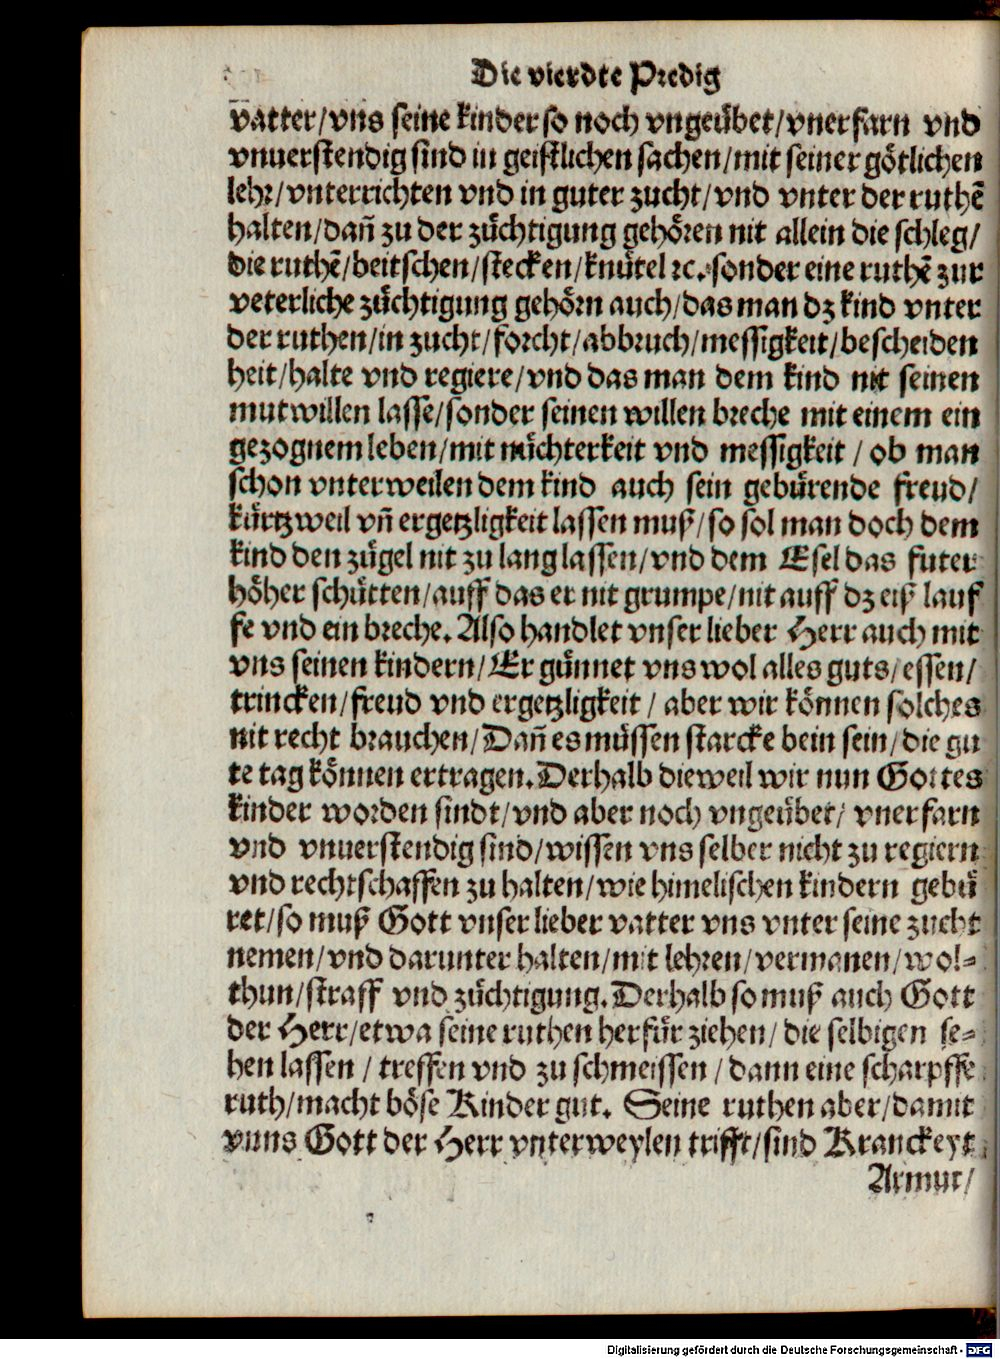 Die vierdte Predig
vatter/vns seine kinder so noch vngeuͤbet/vnerfarn vnd
vnuerstendig sind in geistlichen sachen/mit seiner goͤtlichen
lehr/vnterrichten vnd in guter zucht/vnd vnter der ruthẽ
halten/dañ zu der zuͤchtigung gehoͤren nit allein die schleg/
die ruthẽ/beitschen/stecken/knuͤtel ꝛc. sonder eine ruthẽ zur
veterliche zuͤchtigung gehoͤrn auch/das man dz kind vnter
der ruthen/in zucht/forcht/abbruch/messigkeit/bescheiden
heit/halte vnd regiere/vnd das man dem kind nit seinen
mutwillen lasse/sonder seinen willen breche mit einem ein
gezognem leben/mit nuͤchterkeit vnd messigkeit / ob man
schon vnterweilen dem kind auch sein gebuͤrende freud/
kuͤrtzweil vñ ergetzligkeit lassen muß/so sol man doch dem
kind den zuͤgel nit zu lang lassen/vnd dem Esel das futer
hoͤher schuͤtten/auff das er nit grumpe/nit auff dz eiß lauf
fe vnd ein breche. Also handlet vnser lieber Herr auch mit
vns seinen kindern/Er guͤnnet vns wol alles guts/essen/
trincken/freud vnd ergetzligkeit / aber wir koͤnnen solches
nit recht brauchen/Dañ es muͤssen starcke bein sein/die gu
te tag koͤnnen ertragen. Derhalb dieweil wir nun Gottes
kinder worden sindt/vnd aber noch vngeuͤbet/ vnerfarn
vnd vnuerstendig sind/wissen vns selber nicht zu regiern
vnd rechtschaffen zu halten/wie himelischen kindern gebuͤ
ret/so muß Gott vnser lieber vatter vns vnter seine zucht
nemen/vnd darunter halten/mit lehren/vermanen/wol-
thun/straff vnd zuͤchtigung. Derhalb so muß auch Gott
der Herr/etwa seine ruthen herfuͤr ziehen/die selbigen se-
hen lassen / treffen vnd zu schmeissen / dann eine scharpffe
ruth/macht boͤse Kinder gut. Seine ruthen aber/damit
vnns Gott der Herr vnterweylen trifft/sind Kranckeyt
Armut/
Digitalisierung gefördert durch die Deutsche Forschungsgemeinschaft - DFG